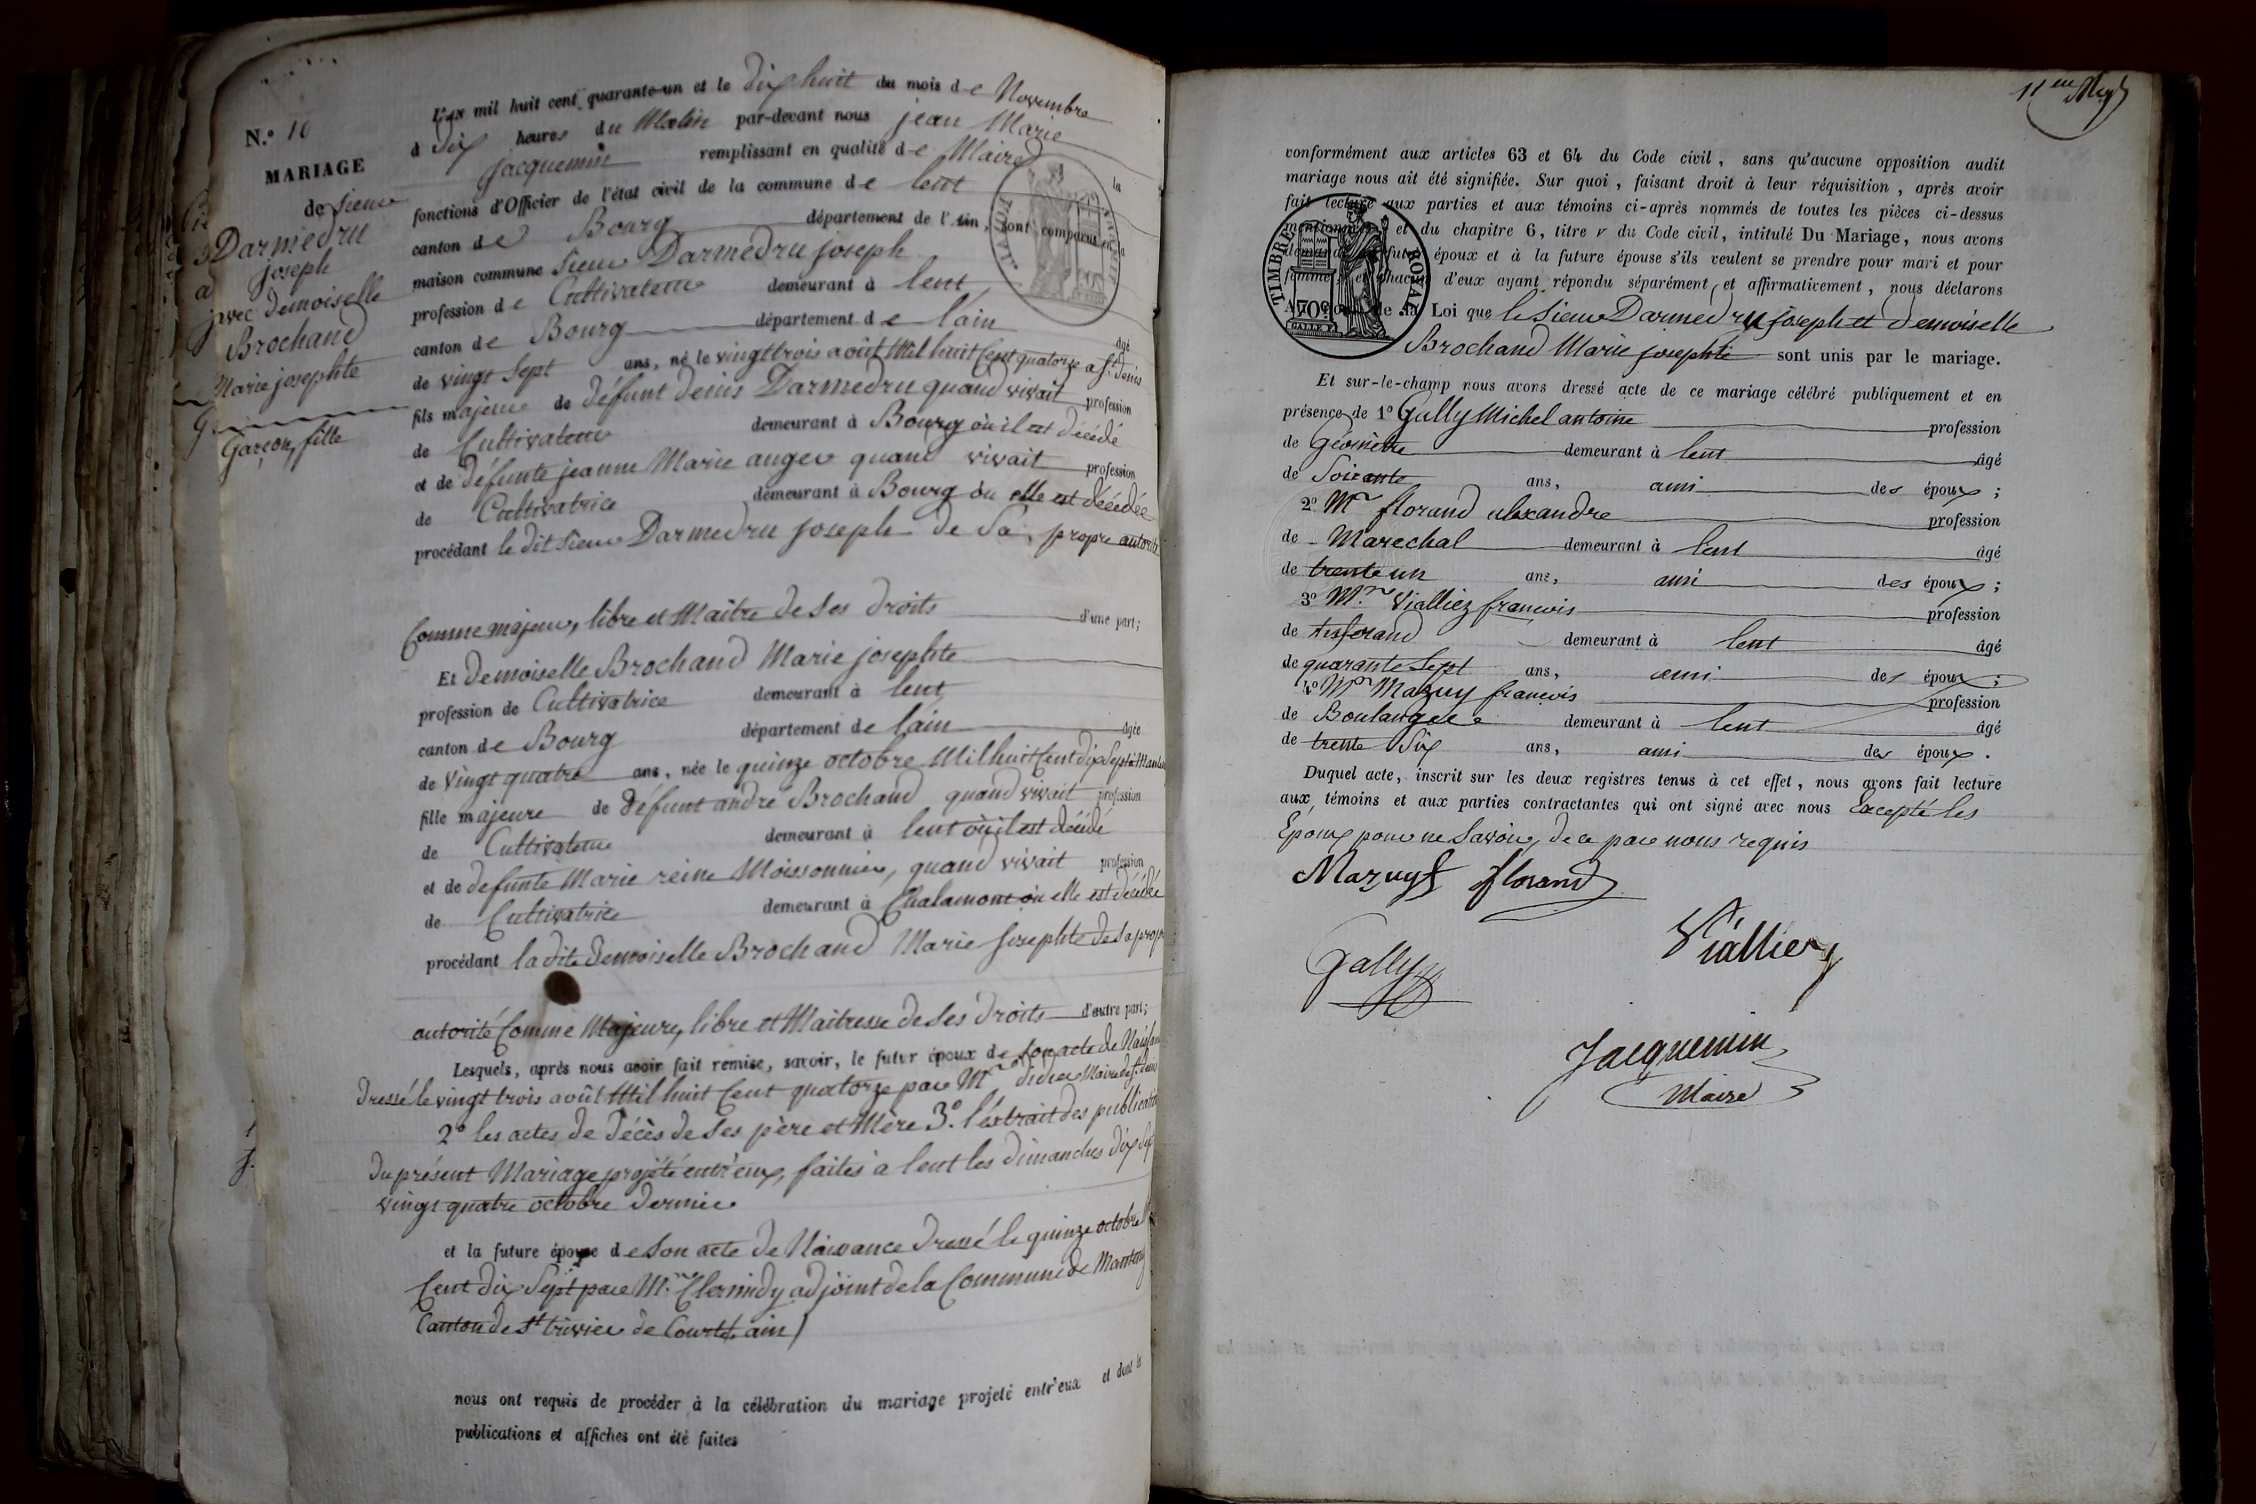 N.º 10
MARIAGE
de Sieur
Darmedru
joseph
avec demoiselle
Brochand
Marie josephte
Garçon, fille
L'an mil huit cent quarante-un et le dix huit du mois de Novembre
à dix heures du Matin par-devant nous jean Marie
jacquemin remplissant en qualité de Maire la
fonctions d'Officier de l'état civil de la commune de lent
canton de Bourg département de l'Ain, sont comparus en
maison commune Sieur Darmedru joseph
profession de Cultivateur demeurant à lent
canton de Bourg département de l'ain âgé
de vingt Sept ans, né le vingt trois août Mil huit Cent quatorze a St denis
fils majeur de défunt denis Darmedru quand vivait profession
de Cultivateur demeurant à Bourg où il est décédé
et de défunte jeanne Marie auger quand vivait profession
de Cultivatrice demeurant à Bourg ou elle est décédée
procédant le dit Sieur Darmedru joseph de Sa propre autorité
Comme majeur, libre et Maitre de Ses droits d'une part;
Et demoiselle Brochand Marie josephte
profession de Cultivatrice demeurant à lent
canton de Bourg département de l'ain âgée
de vingt quatre ans, née le quinze octobre Mil huit Cent dix Sept à
fille majeure de défunt andré Brochand quand vivait profession
de Cultivateur demeurant à lent où il est décédé
et de defunte Marie reine Moissonnier, quand vivait profession
de Cultivatrice demeurant à Chalamont où elle est décédée
procédant la dite demoiselle Brochand Marie josephte de Sa prop
autorité Comme Majeure, libre et Maitresse de Ses droits d'autre part;
Lesquels, après nous avoir fait remise, savoir, le futur époux de Son acte de
Dressé le vingt trois août Mil huit Cent quatorze par Mr didier Maire de St denis
2º les actes de Décès de Ses père et Mère 3.º l'extrait des
du présent Mariage projeté entr'eux, faites à lent les dimanches dix Sept
vingt quatre octobre dernier
et la future épouse de Son acte de Naissance dressé le quinze octobre
Cent dix Sept par Mr. adjoint de la Commune de
Canton de St trivier de Courtes ain)
nous ont requis de procéder à la célébration du mariage projeté entr'eux et dont les
publications et affiches ont été faites
conformément aux articles 63 et 64 du Code civil, sans qu'aucune opposition audit
mariage nous ait été signifiée. Sur quoi, faisant droit à leur réquisition, après avoir
fait lecture aux parties et aux témoins ci-après nommés de toutes les pièces ci-dessus
mentionnées et du chapitre 6, titre v du Code civil, intitulé Du Mariage, nous avons
demandé au futur époux et à la future épouse s'ils veulent se prendre pour mari et pour
femme; et chacun d'eux ayant répondu séparément et affirmativement, nous déclarons
TIMBRE ROYAL
70c
Au nom de la Loi que le Sieur Darmedru joseph et demoiselle
Brochand Marie josephte sont unis par le mariage.
Et sur-le-champ nous avons dressé acte de ce mariage célébré publiquement et en
présence de 1º Gally Michel antoine profession
de Géomètre demeurant à lent âgé
de Soixante ans, ami des époux;
2º Mr florand alexandre profession
de Marechal demeurant à lent âgé
de trente un ans, ami des époux;
3º Mr. Vialliez francois profession
de tisserand demeurant à lent âgé
de quarante Sept ans, ami des époux;
4º Mr Mazuy francois profession
de Boulanger demeurant à lent âgé
de trente Six ans, ami des époux.
Duquel acte, inscrit sur les deux registres tenus à cet effet, nous avons fait lecture
aux témoins et aux parties contractantes qui ont signé avec nous Excepté les
Epoux pour ne Savoir, de ce par nous requis
Mazuy florand
Gally Viallier
Jacquemin
Maire